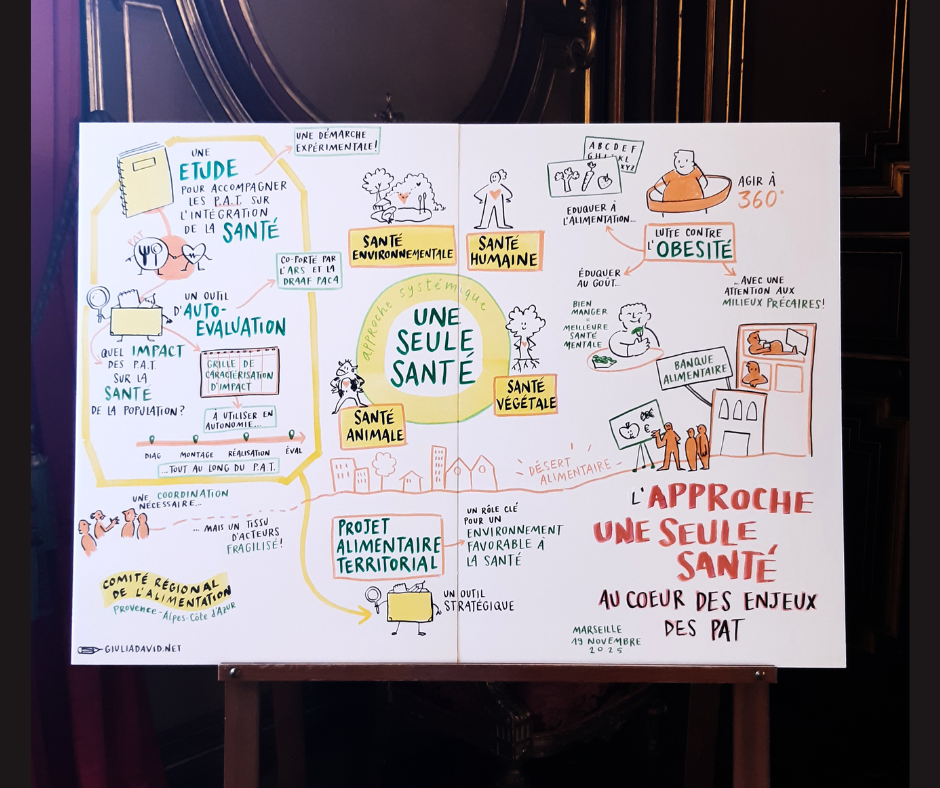 UNE
ETUDE
POUR ACCOMPAGNER
LES P.A.T. SUR
L'INTÉGRATION
DE LA SANTÉ
UNE DÉMARCHE
EXPÉRIMENTALE!
PAT
CO-PORTÉ PAR
L'ARS ET LA
DRAAF PACA
UN OUTIL
D'AUTO-
EVALUATION
QUEL IMPACT
DES P.A.T.
SUR LA
SANTÉ
DE LA POPULATION?
GRILLE DE
CARACTÉRISATION
D'IMPACT
À UTILISER EN
AUTONOMIE...
DIAG MONTAGE RÉALISATION ÉVAL
...TOUT AU LONG DU P.A.T.
UNE COORDINATION
NÉCESSAIRE...
... MAIS UN TISSU
D'ACTEURS
FRAGILISÉ!
COMITÉ RÉGIONAL
DE L'ALIMENTATION
Provence-Alpes-Côte d'Azur
GIULIADAVID.NET
SANTÉ
ENVIRONNEMENTALE
SANTÉ
HUMAINE
approche systémique
UNE
SEULE
SANTÉ
SANTÉ
VÉGÉTALE
SANTÉ
ANIMALE
DÉSERT
ALIMENTAIRE
PROJET
ALIMENTAIRE
TERRITORIAL
UN RÔLE CLÉ
POUR UN
ENVIRONNEMENT
FAVORABLE À
LA SANTÉ
UN OUTIL
STRATÉGIQUE
ABCDEF
XYZ
EDUQUER À
L'ALIMENTATION...
AGIR À
360°
LUTTE CONTRE
L'OBESITÉ
ÉDUQUER
AU GOÛT...
...AVEC UNE
ATTENTION AUX
MILIEUX PRÉCAIRES!
BIEN
MANGER
=
MEILLEURE
SANTÉ
MENTALE
BANQUE
ALIMENTAIRE
L'APPROCHE
UNE SEULE
SANTÉ
AU COEUR DES ENJEUX
DES PAT
MARSEILLE
19 NOVEMBRE
2025